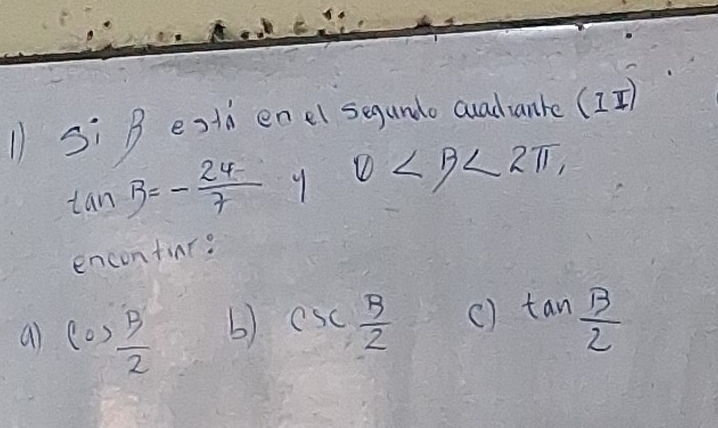 1) Si β está en el segundo cuadrante (II)
tan β = - 24/7 y 0 < β < 2π,
encontrar:
a) cos β/2 b) csc β/2 c) tan β/2